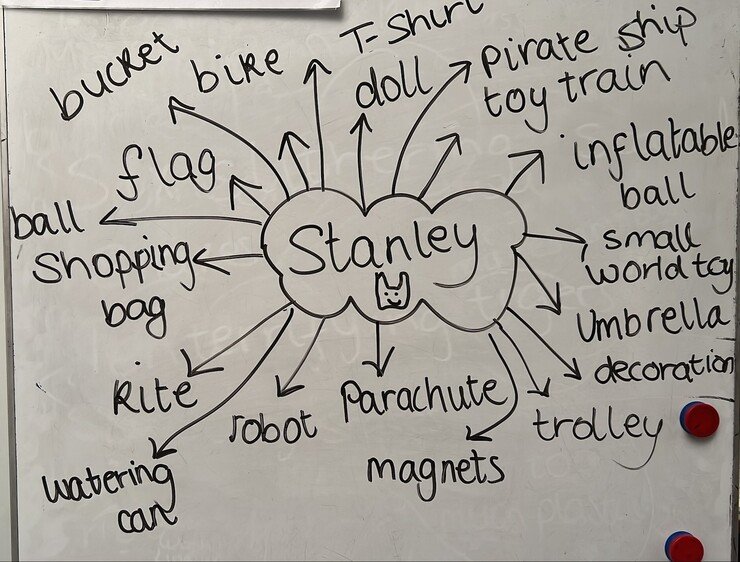 T-Shirt
bucket
bike
doll
pirate ship
toy train
flag
inflatable
ball
ball
Stanley
Shopping
bag
small
world toy
Umbrella
decoration
Kite
robot
Parachute
trolley
magnets
watering
can